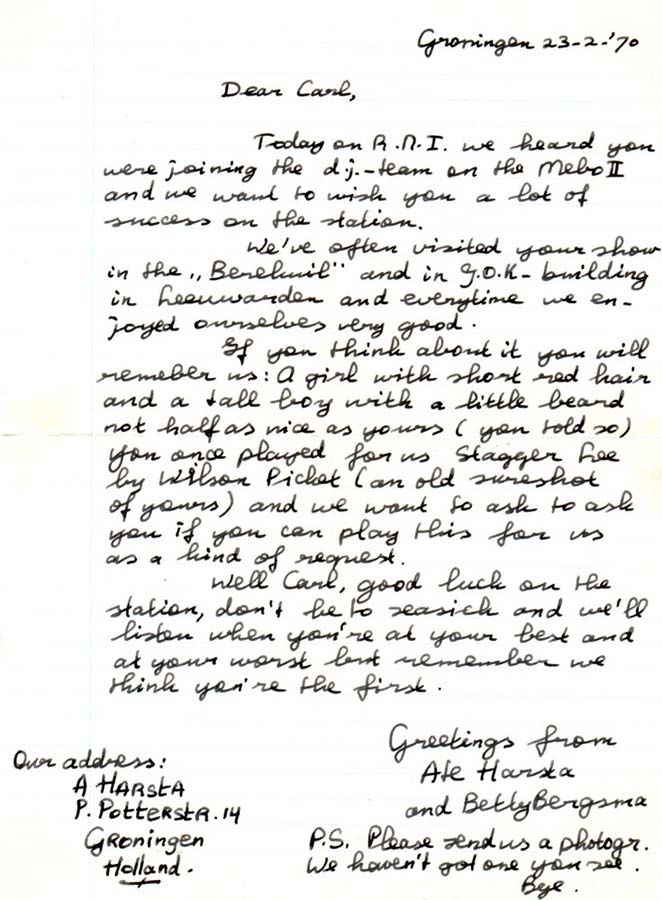 Groningen 23-2-'70
Dear Carl,
Today on R.N.I. we heard you
were joining the d.j.-team on the Mebo II
and we want to wish you a lot of
success on the station.
We've often visited your show
in the „Berekuil" and in G.O.K-building
in Leeuwarden and everytime we en-
joyed ourselves very good.
If you think about it you will
remeber us: A girl with short red hair
and a tall boy with a little beard
not half as nice as yours (you told so)
you once played for us Stagger Lee
by Wilson Picket (an old sureshot
of yours) and we want to ask to ask
you if you can play this for us
as a kind of request.
Well Carl, good luck on the
station, don't be to seasick and we'll
listen when you're at your best and
at your worst but remember we
think you're the first.
Greetings from
Ate Harsta
and Betty Bergsma
Our address:
A HARSTA
P. POTTERSTR. 14
GRONINGEN
Holland.
P.S. Please send us a photogr.
We haven't got one you see.
Bye.